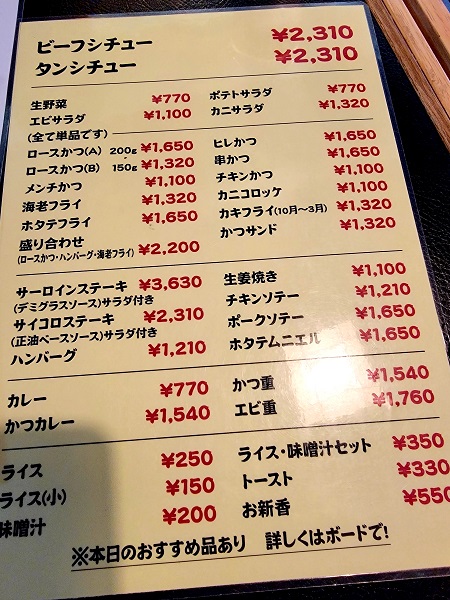 ビーフシチュー ¥2,310
タンシチュー ¥2,310
生野菜 ¥770
エビサラダ ¥1,100
(全て単品です)
ロースかつ(A) 200g ¥1,650
ロースかつ(B) 150g ¥1,320
メンチかつ ¥1,100
海老フライ ¥1,320
ホタテフライ ¥1,650
盛り合わせ
(ロースかつ・ハンバーグ・海老フライ) ¥2,200
ポテトサラダ ¥770
カニサラダ ¥1,320
ヒレかつ ¥1,650
串かつ ¥1,650
チキンかつ ¥1,100
カニコロッケ ¥1,100
カキフライ(10月〜3月) ¥1,320
かつサンド ¥1,320
サーロインステーキ ¥3,630
(デミグラスソース)サラダ付き
サイコロステーキ ¥2,310
(正油ベースソース)サラダ付き
ハンバーグ ¥1,210
生姜焼き ¥1,100
チキンソテー ¥1,210
ポークソテー ¥1,650
ホタテムニエル ¥1,650
カレー ¥770
かつカレー ¥1,540
かつ重 ¥1,540
エビ重 ¥1,760
ライス ¥250
ライス(小) ¥150
味噌汁 ¥200
ライス・味噌汁セット ¥350
トースト ¥330
お新香 ¥550
※本日のおすすめ品あり 詳しくはボードで!